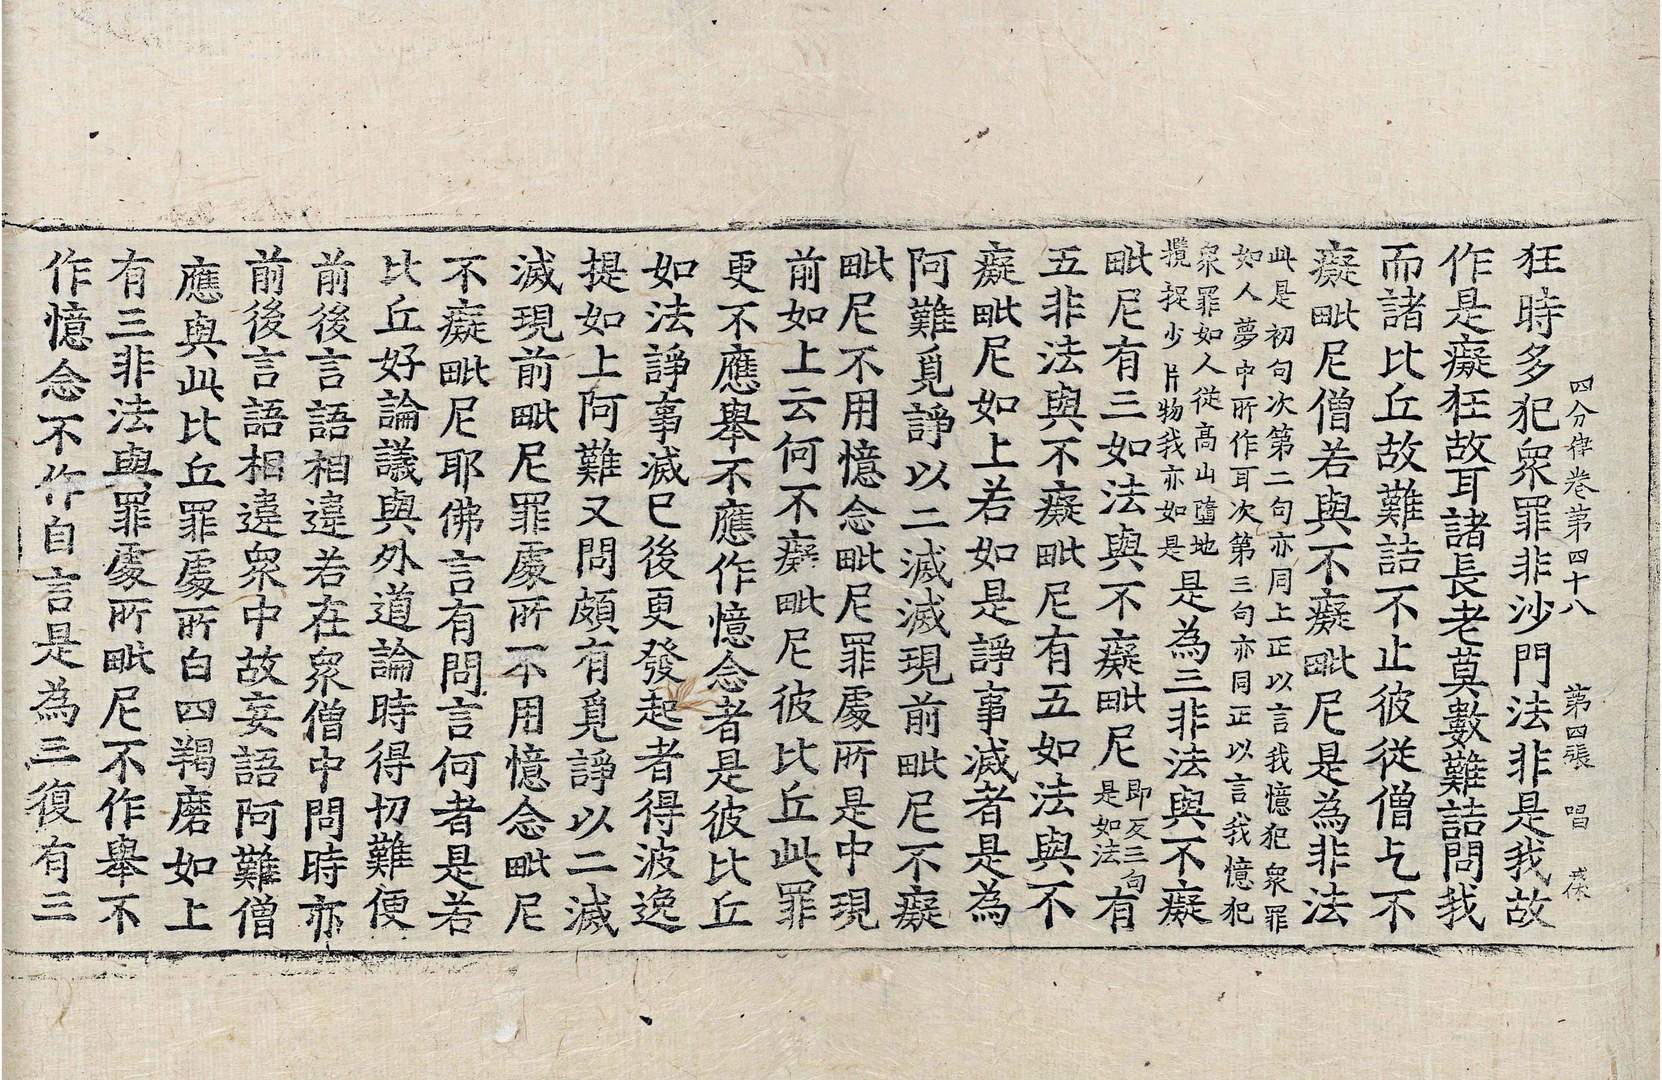 四分律卷第四十八　第四張　唱
狂時多犯衆罪非沙門法非是我故
作是癡狂故耳諸長老莫數難詰問我
而諸比丘故難詰不止彼從僧乞不
癡毗尼僧若與不癡毗尼是為非法
此是初句次第二句亦同上正以言我憶犯衆罪
如人夢中所作耳次第三句亦同正以言我憶犯
衆罪如人從高山墮地
攬捉少片物我亦如是
是為三非法與不癡
毗尼有三如法與不癡毗尼
即反三句
是如法
有
五非法與不癡毗尼有五如法與不
癡毗尼如上若如是諍事滅者是為
阿難覓諍以二滅滅現前毗尼不癡
毗尼不用憶念毗尼罪處所是中現
前如上云何不癡毗尼彼比丘此罪
更不應舉不應作憶念者是彼比丘
如法諍事滅已後更發起者得波逸
提如上阿難又問頗有覓諍以二滅
滅現前毗尼罪處所不用憶念毗尼
不癡毗尼耶佛言有問言何者是若
比丘好論議與外道論時得切難便
前後言語相違若在衆僧中問時亦
前後言語相違衆中故妄語阿難僧
應與此比丘罪處所白四羯磨如上
有三非法與罪處所毗尼不作舉不
作憶念不作自言是為三復有三